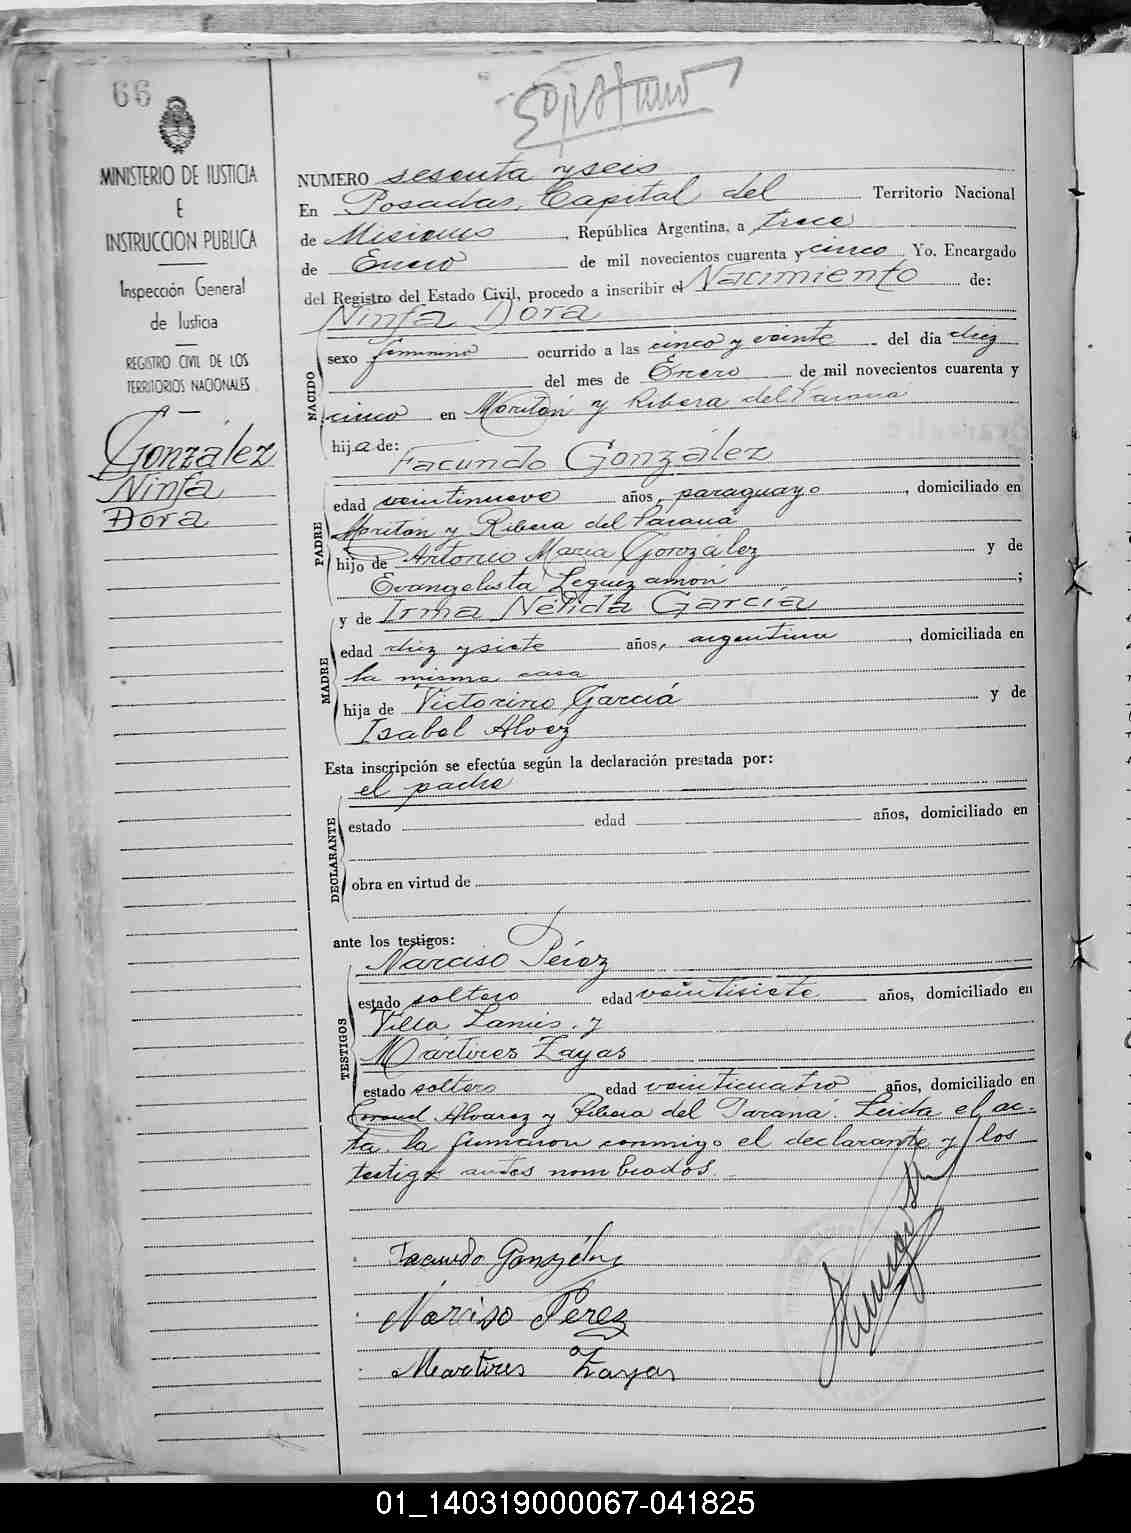 66
MINISTERIO DE JUSTICIA
E
INSTRUCCION PUBLICA
Inspección General
de Justicia
REGISTRO CIVIL DE LOS
TERRITORIOS NACIONALES
González
Ninfa
Dora
NUMERO sesenta y seis
En Posadas, Capital del Territorio Nacional
de Misiones, República Argentina, a trece
de Enero de mil novecientos cuarenta y cinco, Yo. Encargado
del Registro del Estado Civil, procedo a inscribir el Nacimiento de:
Ninfa Dora
NACIDO
sexo femenino ocurrido a las cinco y veinte del día diez
del mes de Enero de mil novecientos cuarenta y
cinco en Moritán y Ribera del Paraná
hija de: Facundo González
PADRE
edad veintinueve años, paraguayo, domiciliado en
Moritán y Ribera del Paraná
hijo de Antonio María González y de
Evangelista Leguizamón;
y de Irma Nélida García
MADRE
edad diez y siete años, argentina, domiciliada en
la misma casa
hija de Victorino García y de
Isabel Alvez
Esta inscripción se efectúa según la declaración prestada por:
el padre
DECLARANTE
estado edad años, domiciliado en
obra en virtud de
ante los testigos:
Narciso Pérez
TESTIGOS
estado soltero edad veintisiete años, domiciliado en
Villa Lanús, y
Mártires Zayas
estado soltero edad veinticuatro años, domiciliado en
Alvarez y Ribera del Paraná. Leida el ac-
ta, la firmaron conmigo el declarante y los
testigos antes nombrados.
Facundo González
Narciso Perez
Martires Zayas
01_140319000067-041825